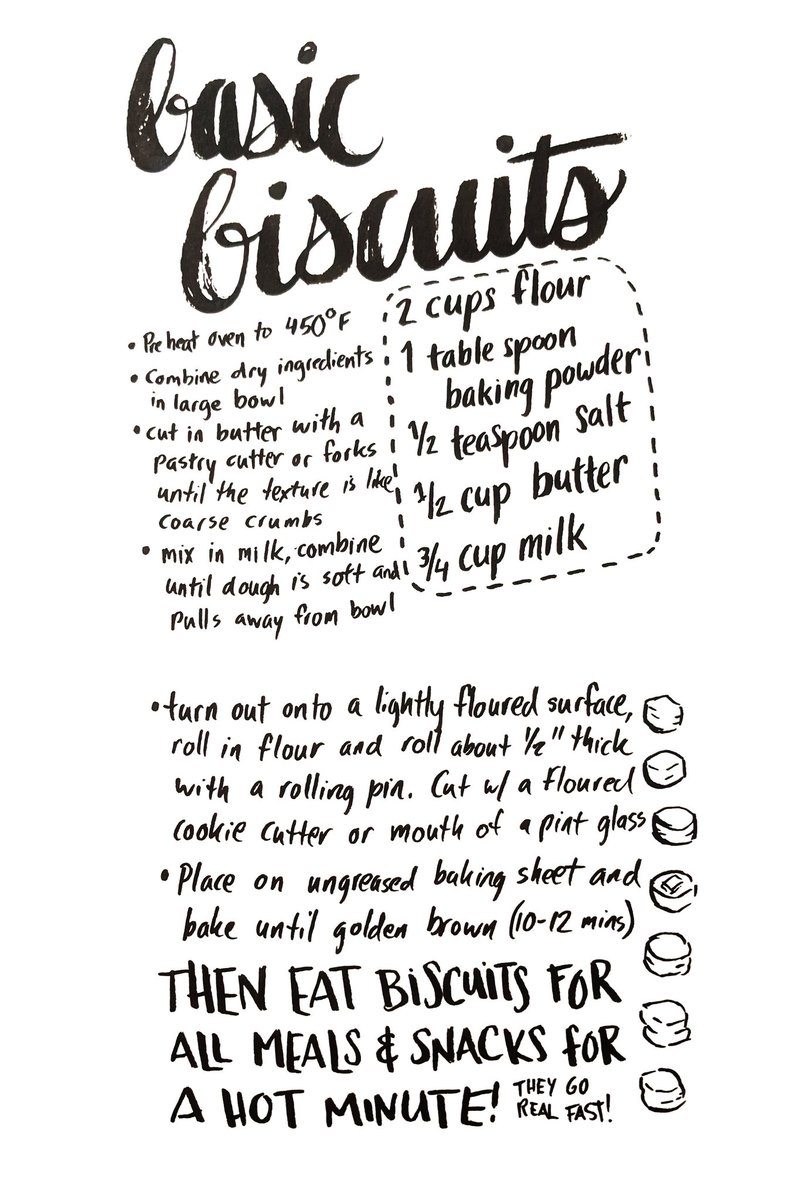 basic
biscuits
2 cups flour
1 table spoon
baking powder
1/2 teaspoon salt
1/2 cup butter
3/4 cup milk
• Preheat oven to 450°F
• Combine dry ingredients
in large bowl
• cut in butter with a
pastry cutter or forks
until the texture is like
coarse crumbs
• mix in milk, combine
until dough is soft and
pulls away from bowl
• turn out onto a lightly floured surface,
roll in flour and roll about 1/2" thick
with a rolling pin. Cut w/ a floured
cookie cutter or mouth of a pint glass
• Place on ungreased baking sheet and
bake until golden brown (10-12 mins)
THEN EAT BISCUITS FOR
ALL MEALS & SNACKS FOR
A HOT MINUTE! THEY GO
REAL FAST!